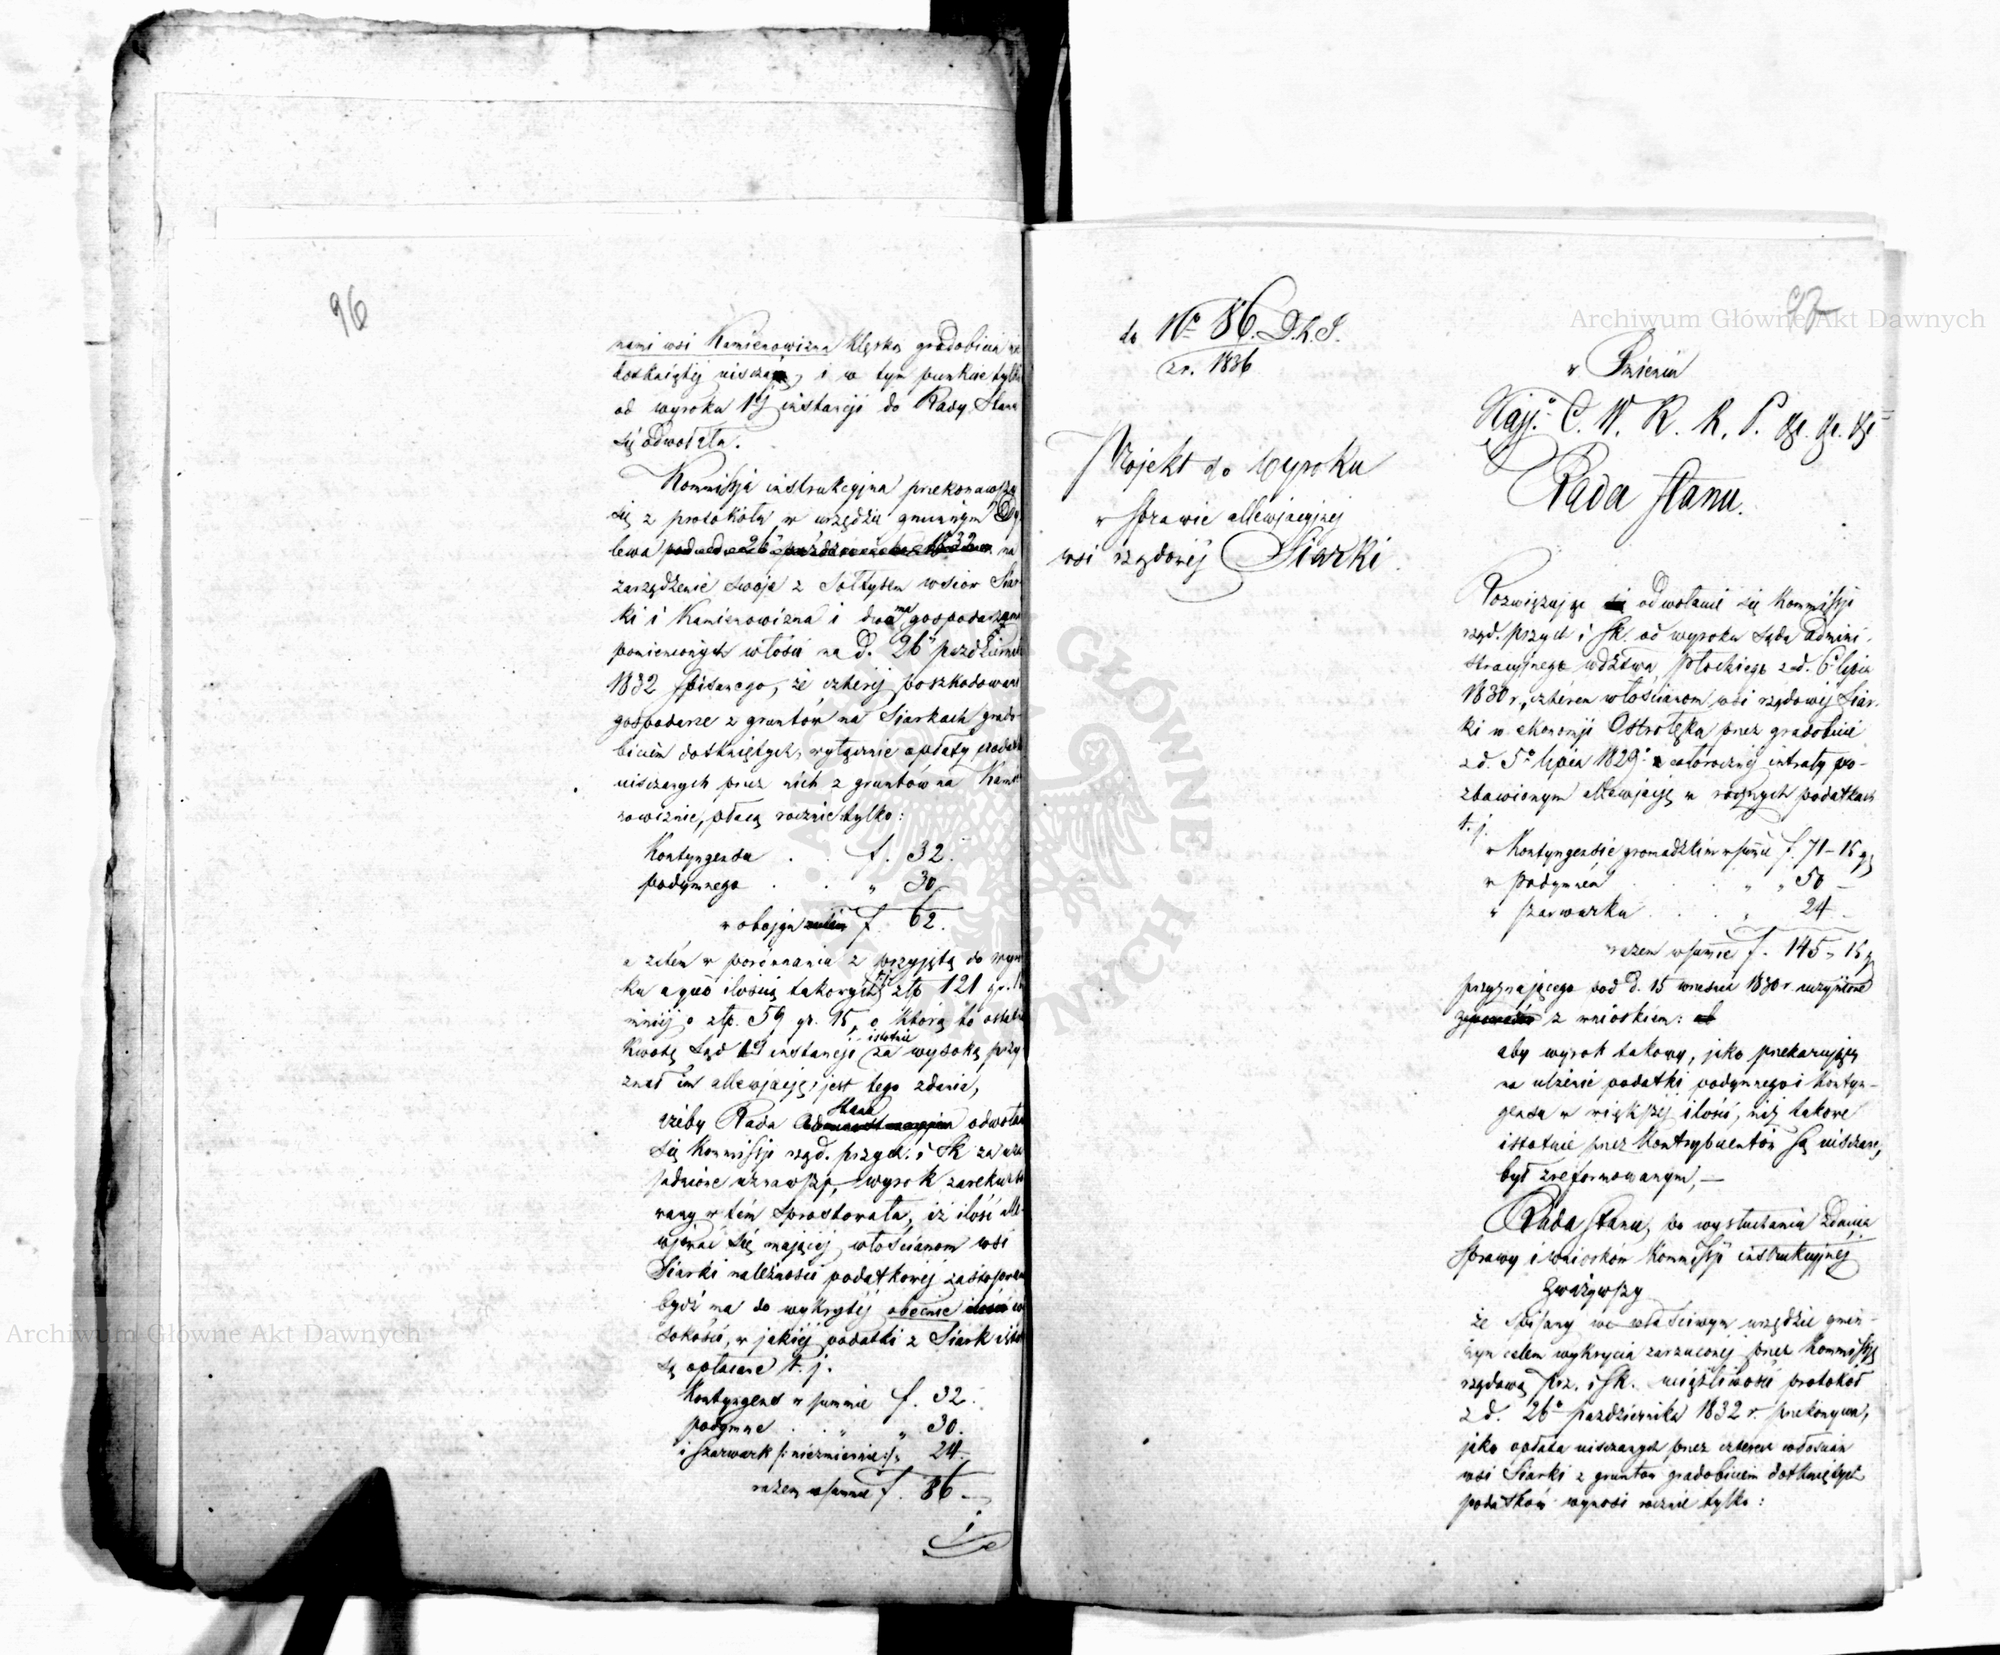 96
nami wsi Kamienowizna klęską gradobicia nie
dotkniętej uiszczają, i w tym punkcie tylko
od wyroku 1ej instancji do Rady Stanu
się odwołała.
Kommissja instrukcyjna przekonawszy
się z protokółu w urzędzie gminnym
lewa pod dniem 26 października 1832 na
zarządzenie swoje z Sołtysem wsiów Siar-
ki i Kamienowizna i dwoma gospodarzami
pomienionych włości na d. 26 październi
1832 spisanego, że czterej poszkodowani
gospodarze z gruntów na Siarkach grado-
biciem dotkniętych, wyłącznie opłaty podatk
uiszczanych przez nich z gruntów na Kamie
nowiznie, płacą rocznie tylko:
Kontyngensu . . f. 32.
podymnego . . „ 30
w obojgu razem f. 62.
a zatem w porównaniu z przyjętą do wyro
ku a quo ilością takowychże złp 121 gr. 15
mniej o złp. 59 gr. 15, o którą to ostatnią
kwotę Sąd 1ej instancji istotnie za wysoką przy-
znał im allewjację; jest tego zdania,
iżby Rada Stanu odwołanie
się Kommissji rząd. przych. i Sk. za uza
sadnione uznawszy, wyrok zarekurso
wany w tém sprostowała, iż ilość alle-
wjować się mającej włościanom wsi
Siarki należności podatkowej zastosowaną
bydź ma do wykrytej obecnie wy
sokości, w jakiej podatki z Siark istot
są opłacane t. j.
Kontyngens w summie f. 32.
podymne . . „ „ 30.
i szarwark /: niezmiennie :/ „ 24.
razem w summie f. 86 —
i
97
do No 86. D.k.S.
z r. 1836
Projekt do Wyroku
w sprawie allewjacyjnej
wsi rządowej Siarki.
w Imieniu
Najj. C. W. R. K. P. &c. &c. &c
Rada Stanu.
Rozwiązując odwołanie się Kommissji
rząd. przych i Sk. od wyroku Sądu admini-
stracyjnego wdztwa Płockiego z d. 6 lipca
1830 r, czterem włościanom wsi rządowej Siar-
ki w ekonomji Ostrołęka przez gradobicie
z d. 5o lipca 1829 całorocznej intraty po-
zbawionym allewjację w rocznych podatkach
t. j.
w Kontyngensie gromadzkim w summie f. 71 – 15 g
w podymnem . . „ „ 50 –
w szarwarku . . „ 24 –
razem w summie f. 145 „ 15 g
przyznającego pod d. 15 września 1830 r. uczynione
z wnioskiem:
aby wyrok takowy, jako przekazujący
na ulżenie podatki podymnego i kontyn-
gensu w większej ilości, niż takowe
istotnie przez kontrybuentów są uiszczane,
był zreformowanym, —
Rada Stanu, po wysłuchaniu zdania
sprawy i wniosków Kommissji instrukcyjnej
Zważywszy
że spisany we właściwym urzędzie gmin-
nym celem wykrycia zarzuconej przez Kommissję
rządową prz. i Sk. uciążliwości protokół
z d. 26o października 1832 r. przekonywa,
jako opłata uiszczanych przez czterech włościan
wsi Siarki z gruntów gradobiciem dotkniętych
podatków wynosi rocznie tylko:
Archiwum Główne Akt Dawnych
Archiwum Główne Akt Dawnych